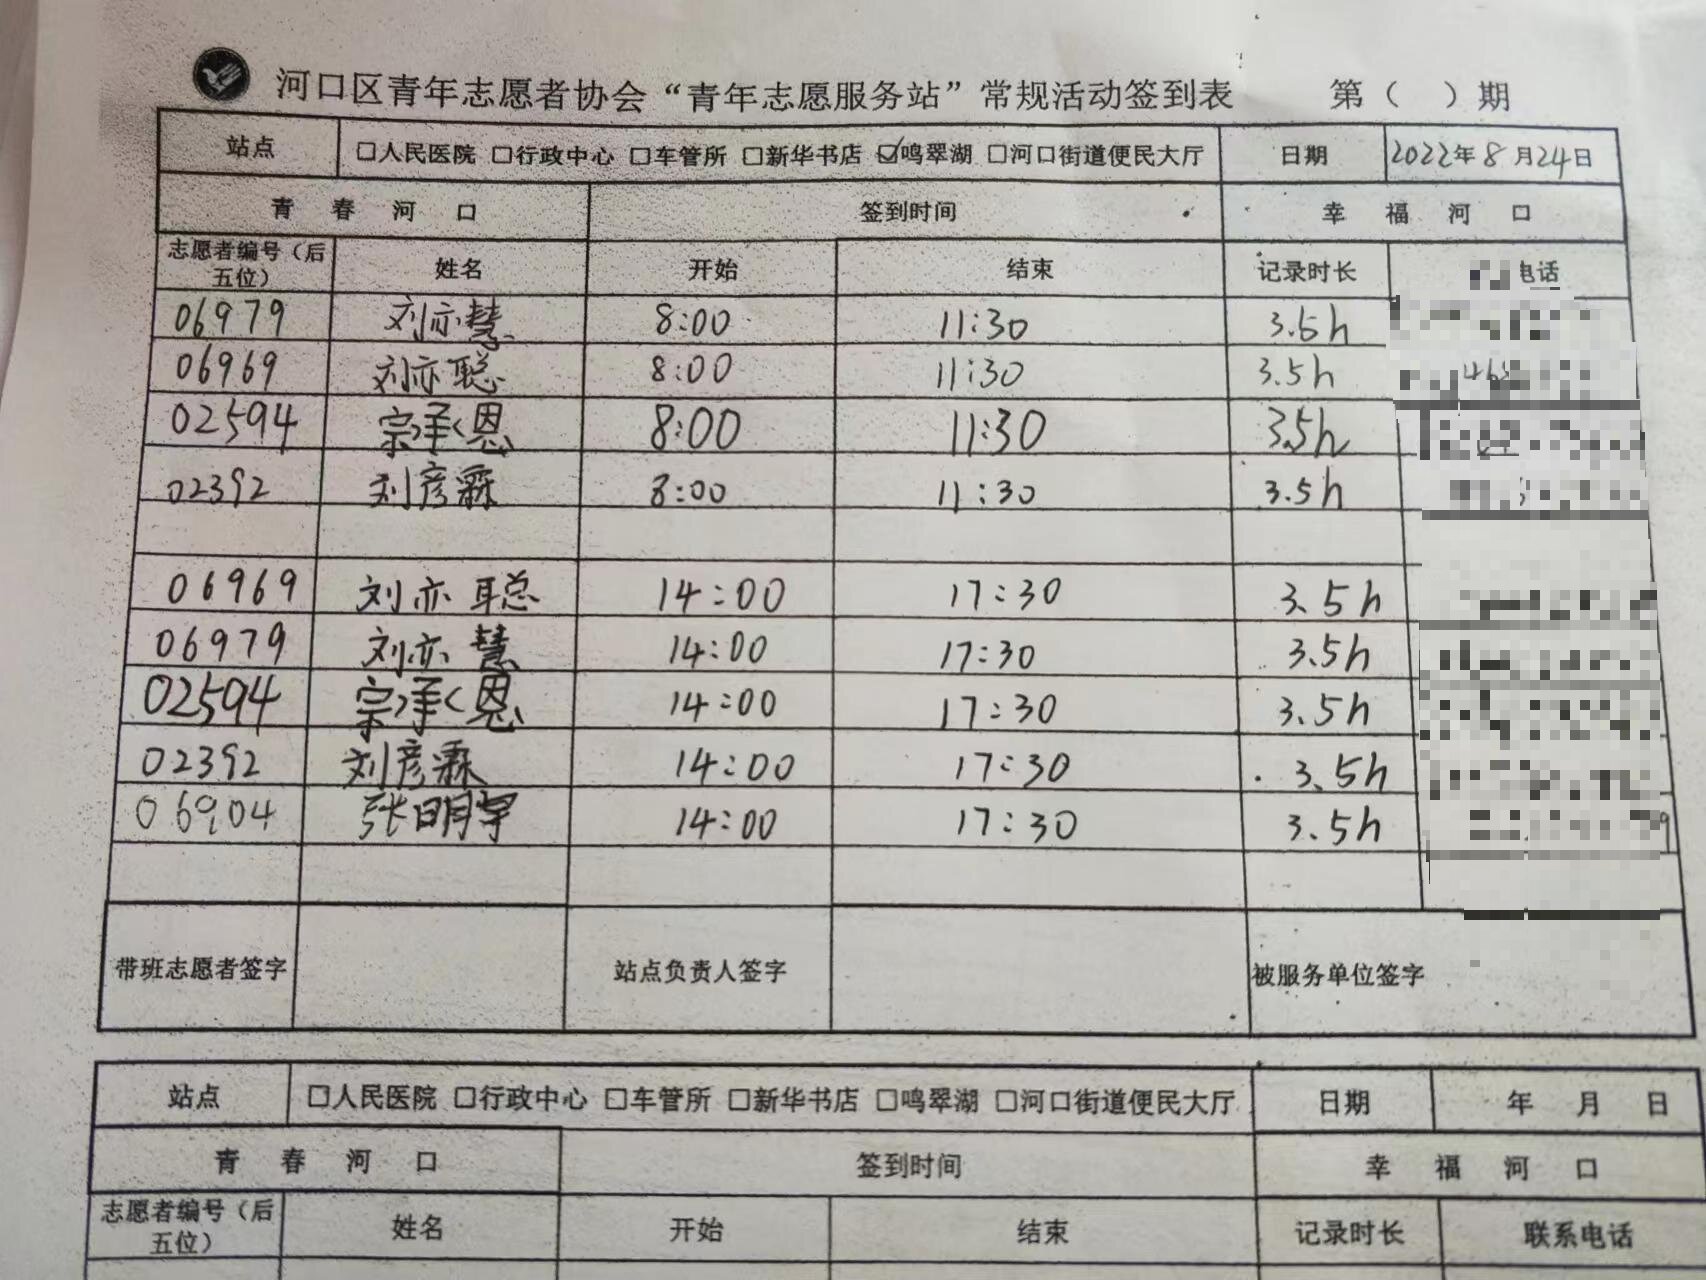 河口区青年志愿者协会“青年志愿服务站”常规活动签到表 第（ ）期
站点 □人民医院 □行政中心 □车管所 □新华书店 ☑鸣翠湖 □河口街道便民大厅 日期 2022年8月24日
青春河口 签到时间 幸福河口
志愿者编号（后五位） 姓名 开始 结束 记录时长 电话
06979 刘亦慧 8:00 11:30 3.5h
06969 刘亦聪 8:00 11:30 3.5h
02594 宗承恩 8:00 11:30 3.5h
02392 刘彦霖 8:00 11:30 3.5h
06969 刘亦聪 14:00 17:30 3.5h
06979 刘亦慧 14:00 17:30 3.5h
02594 宗承恩 14:00 17:30 3.5h
02392 刘彦霖 14:00 17:30 3.5h
06904 张明宇 14:00 17:30 3.5h
带班志愿者签字 站点负责人签字 被服务单位签字
站点 □人民医院 □行政中心 □车管所 □新华书店 □鸣翠湖 □河口街道便民大厅 日期 年 月 日
青春河口 签到时间 幸福河口
志愿者编号（后五位） 姓名 开始 结束 记录时长 联系电话